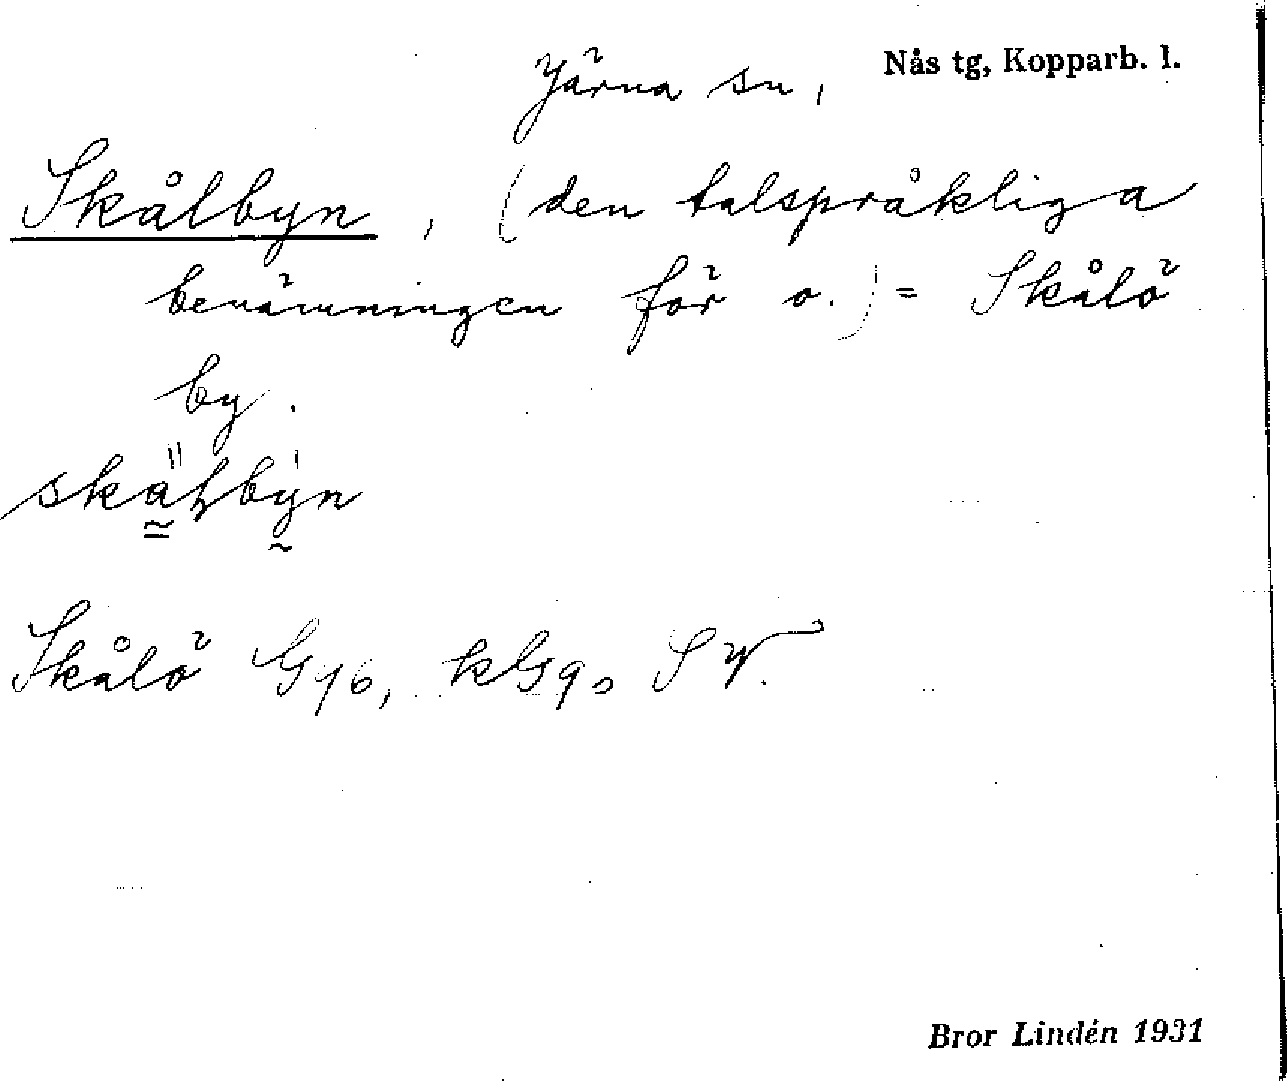 Järna sn, Nås tg, Kopparb. l.
Skålbyn, (den talspråkliga
benämningen för o.) = Skålö
by.
skäłbyn
Skålö G76, kG9o SV.
Bror Lindén 1931